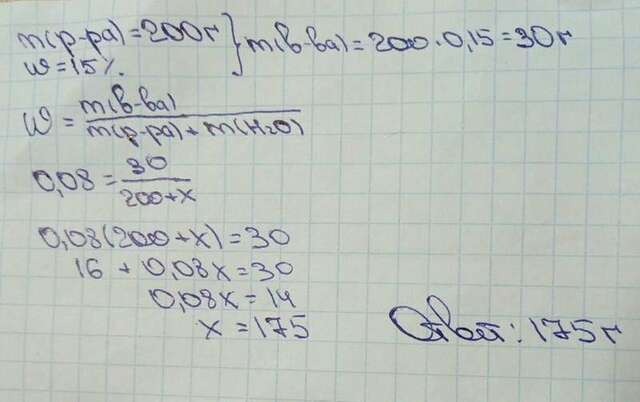 m(р-ра) = 200г } m(в-ва) = 200 · 0,15 = 30г
W = 15%.
W = m(в-ва) / m(р-ра) + m(H2O)
0,08 = 30 / 200+x
0,08(200+x) = 30
16 + 0,08x = 30
0,08x = 14
x = 175
Ответ: 175г